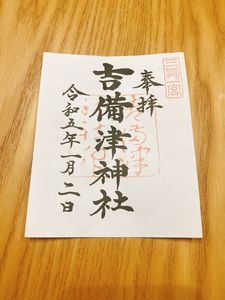 三備一宮
奉拝
吉備津神社
令和五年一月二日